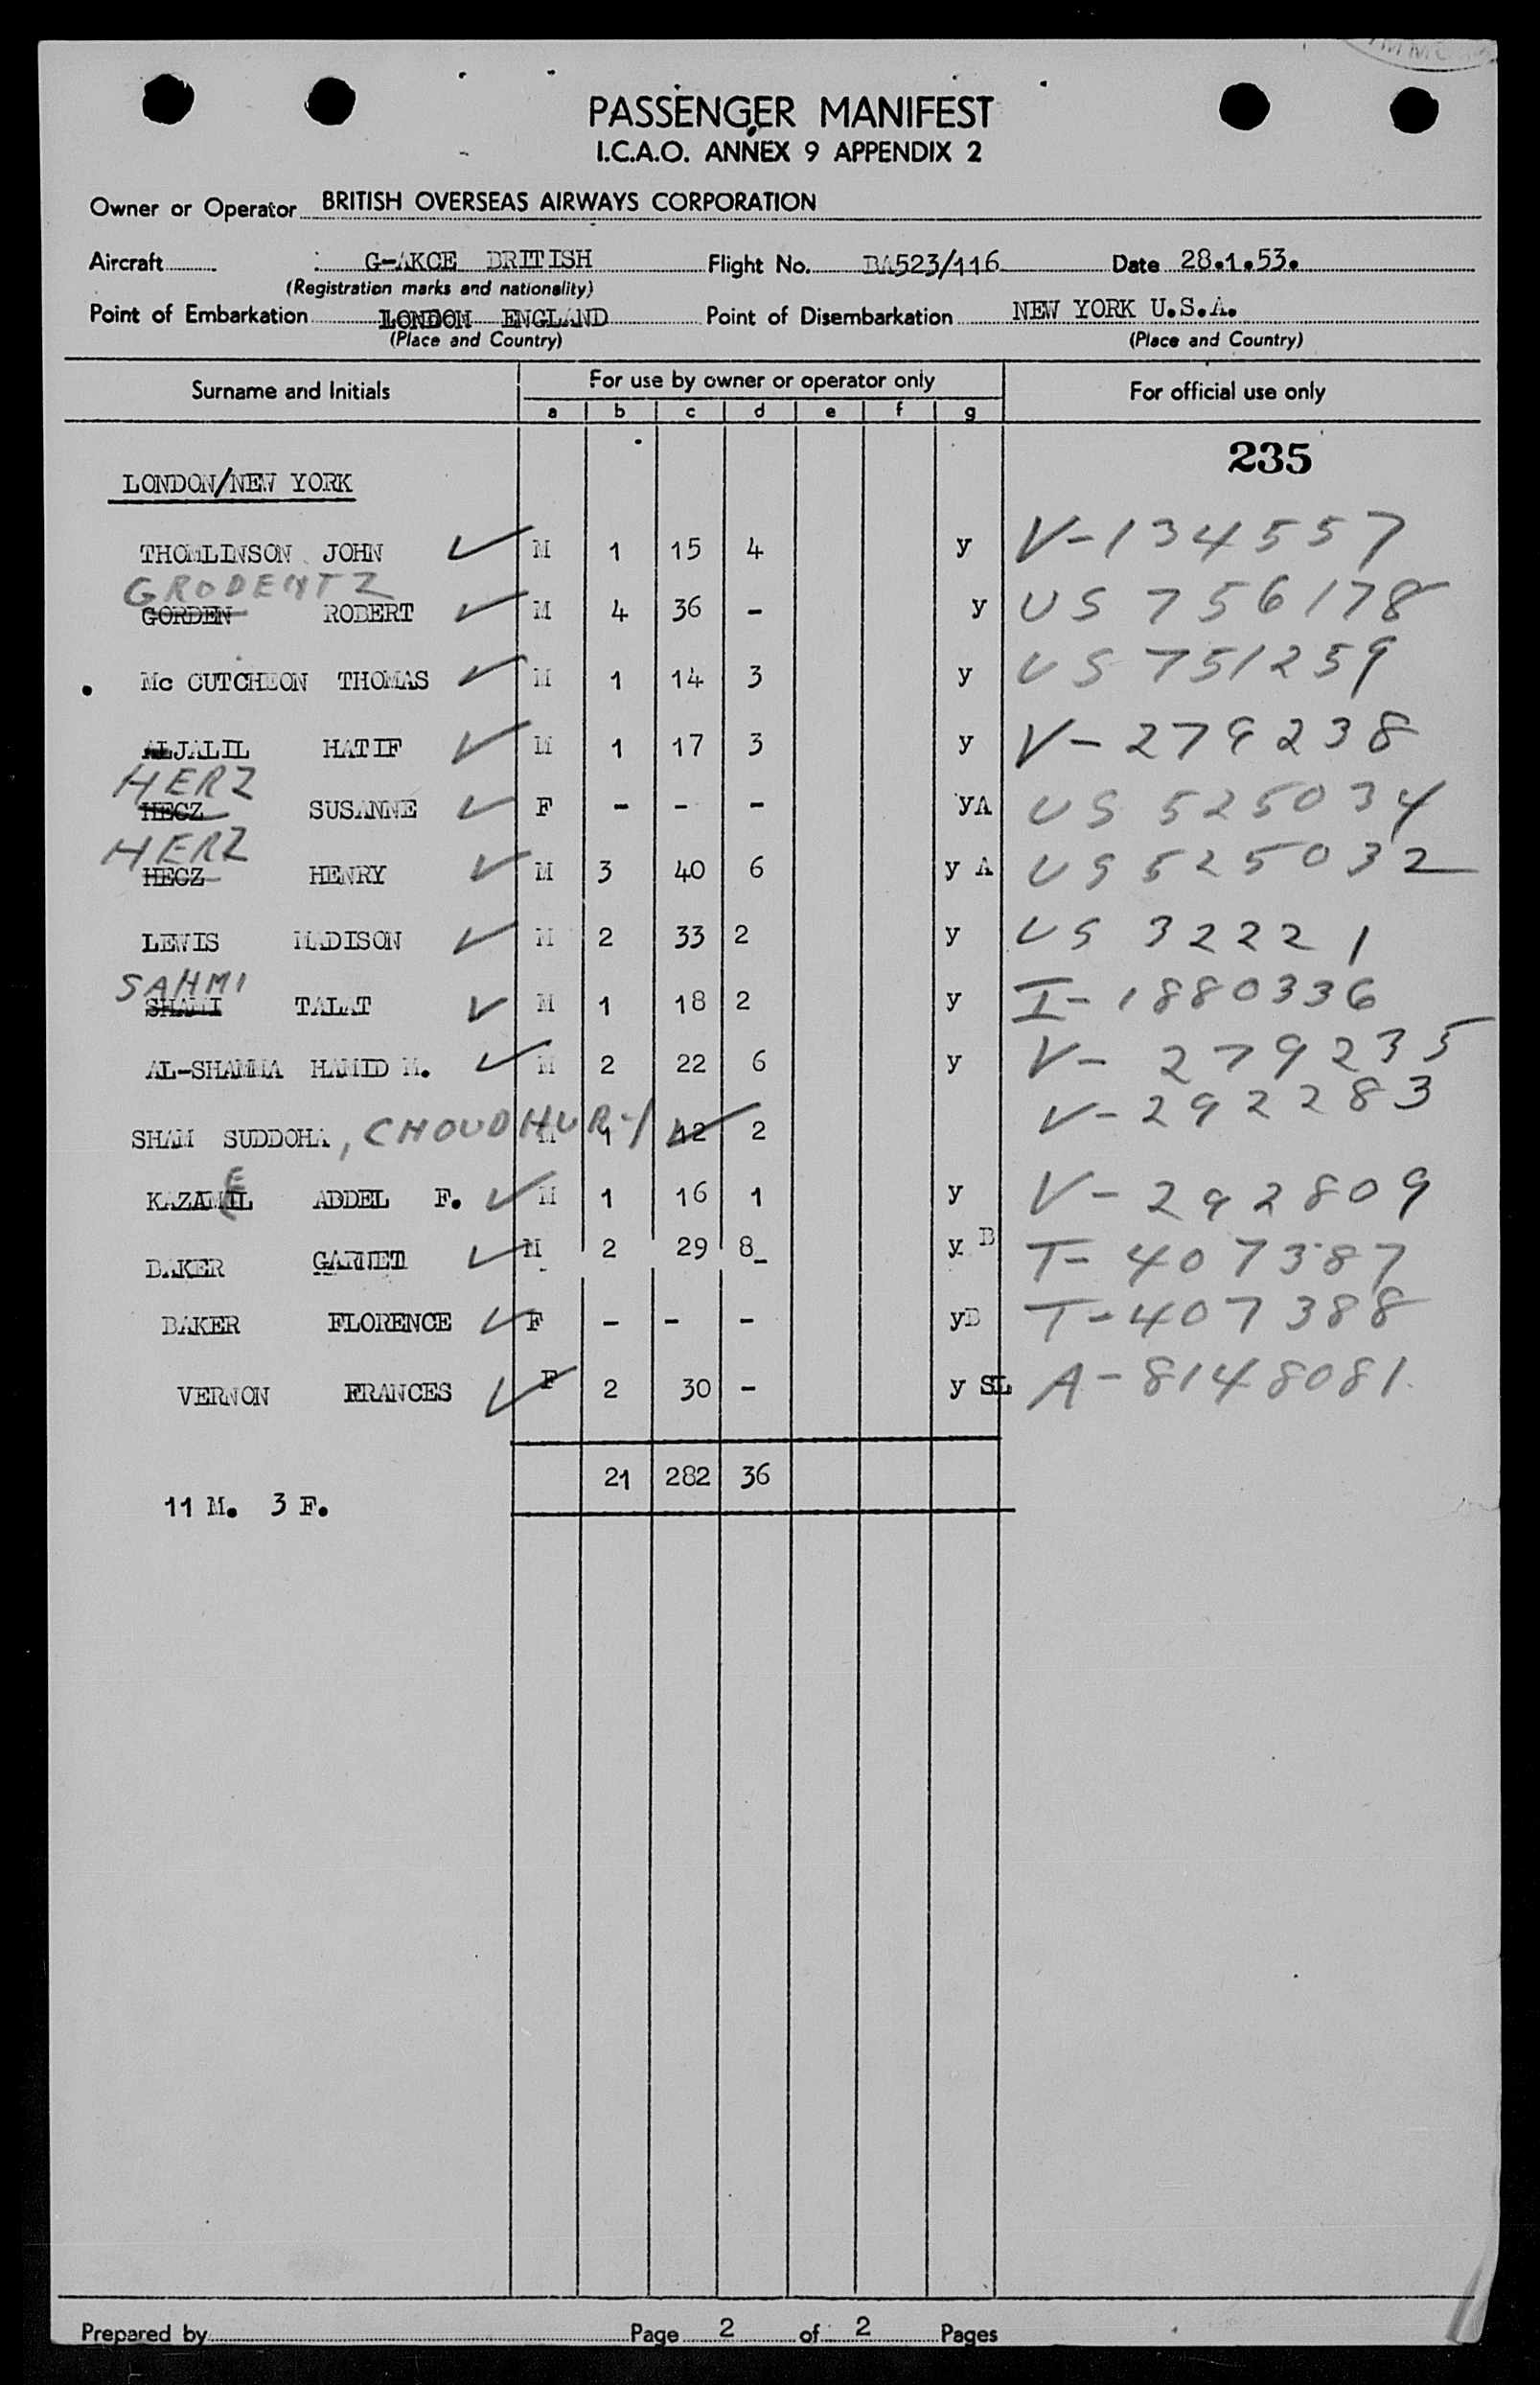 PASSENGER MANIFEST
I.C.A.O. ANNEX 9 APPENDIX 2
Owner or Operator BRITISH OVERSEAS AIRWAYS CORPORATION
Aircraft G-AKCE BRITISH Flight No. BA523/116 Date 28.1.53.
(Registration marks and nationality)
Point of Embarkation LONDON ENGLAND Point of Disembarkation NEW YORK U.S.A.
(Place and Country) (Place and Country)
Surname and Initials For use by owner or operator only For official use only
a b c d e f g
235
LONDON/NEW YORK
THOMLINSON JOHN ✓ M 1 15 4 y V-134557
GRODENTZ
GORDEN ROBERT ✓ M 4 36 - y US 756178
Mc CUTCHEON THOMAS ✓ M 1 14 3 y US 751259
ALJALIL HATIF ✓ M 1 17 3 y V-279238
HERZ
HECZ SUSANNE ✓ F - - - yA US 525034
HERZ
HECZ HENRY ✓ M 3 40 6 y A US 525032
LEWIS MADISON ✓ M 2 33 2 y US 32221
SAHMI
SHAMI TALAT ✓ M 1 18 2 y I-1880336
AL-SHAMMA HAMID M. ✓ M 2 22 6 y V-279235
SHAM SUDDOHA, CHOUDHURY M 1 12 ✓ 2 V-292283
KAZAMEL ABDEL F. ✓ M 1 16 1 y V-292809
BAKER GARNET ✓ M 2 29 8 y B T-407387
BAKER FLORENCE ✓ F - - - yB T-407388
VERNON FRANCES ✓ F 2 30 - y SL A-8148081
21 282 36
11 M. 3 F.
Prepared by Page 2 of 2 Pages